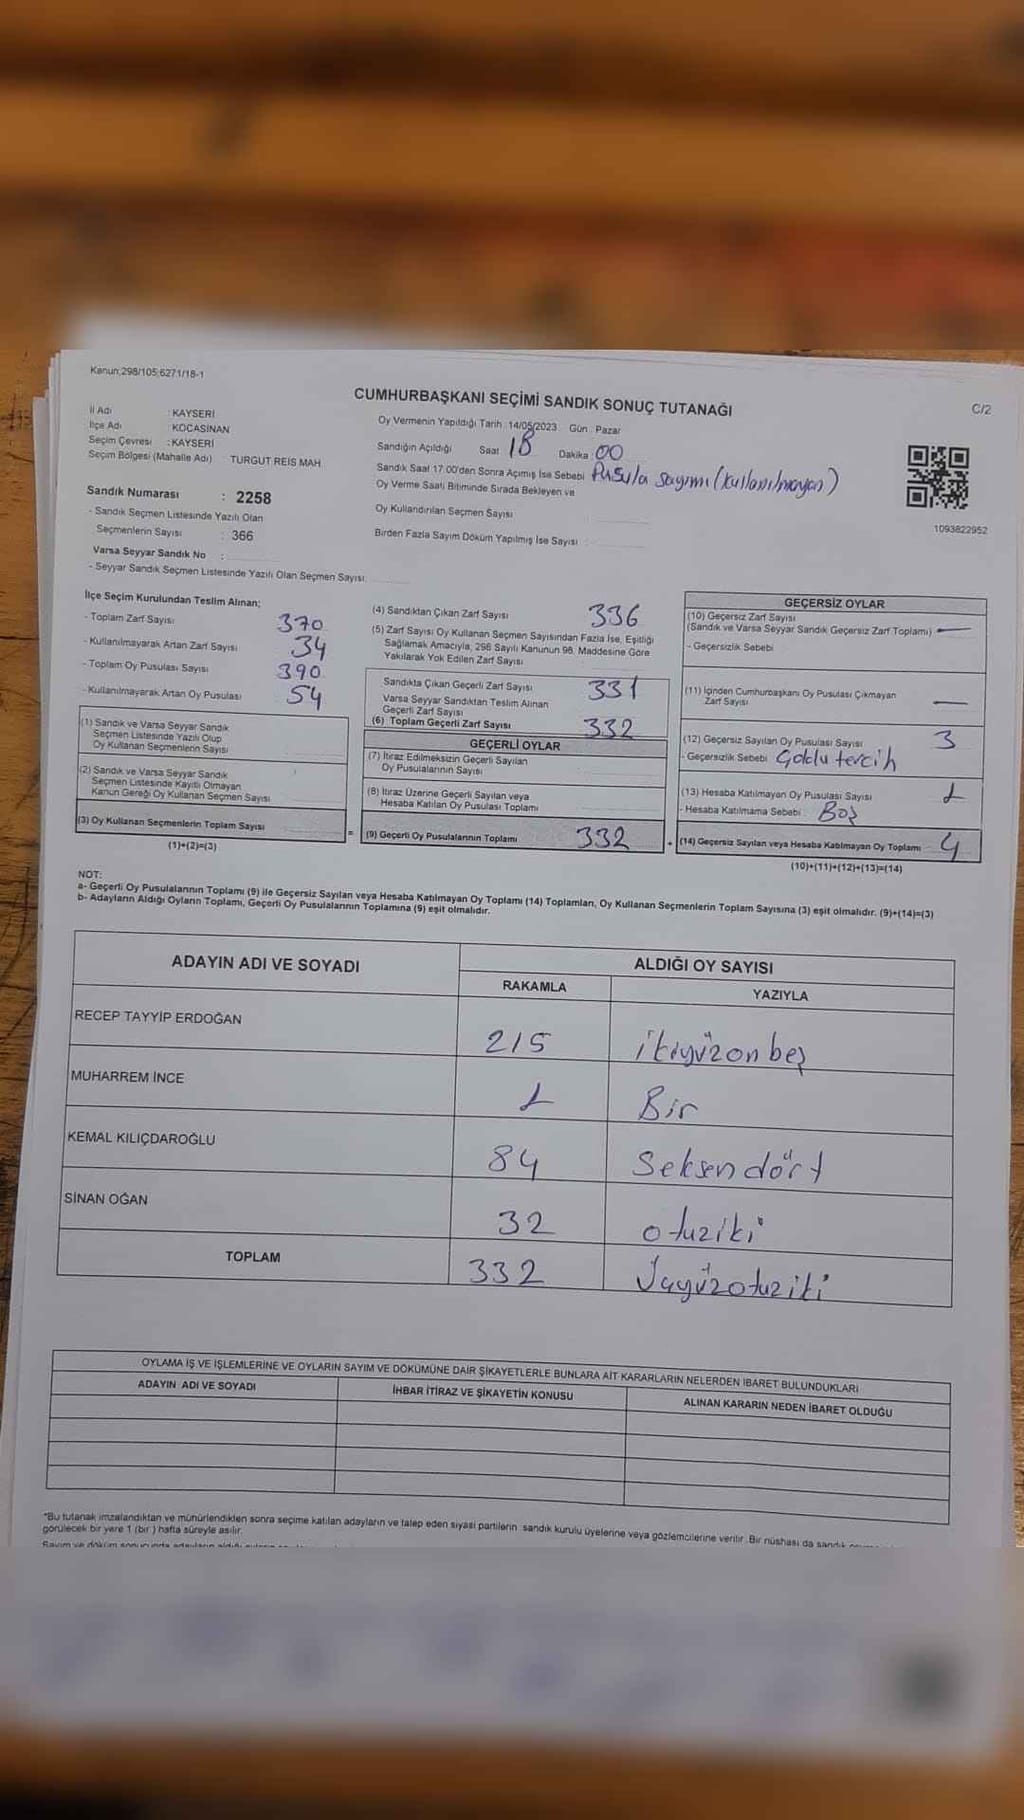 Kanun;298/105;6271/18-1
CUMHURBAŞKANI SEÇİMİ SANDIK SONUÇ TUTANAĞI
C/2
İl Adı : KAYSERİ
İlçe Adı : KOCASİNAN
Seçim Çevresi : KAYSERİ
Seçim Bölgesi (Mahalle Adı) : TURGUT REİS MAH.
Oy Vermenin Yapıldığı Tarih : 14/05/2023 Gün : Pazar
Sandığın Açıldığı Saat 18 Dakika : 00
Sandık Saat 17:00'den Sonra Açımış İse Sebebi Pusula sayımı (kullanılmayan)
Oy Verme Saati Bitiminde Sırada Bekleyen ve
Oy Kullandırılan Seçmen Sayısı
Birden Fazla Sayım Döküm Yapılmış İse Sayısı :
1093822952
Sandık Numarası : 2258
- Sandık Seçmen Listesinde Yazılı Olan
Seçmenlerin Sayısı : 366
Varsa Seyyar Sandık No :
- Seyyar Sandık Seçmen Listesinde Yazılı Olan Seçmen Sayısı
İlçe Seçim Kurulundan Teslim Alınan;
- Toplam Zarf Sayısı 370
- Kullanılmayarak Artan Zarf Sayısı 34
- Toplam Oy Pusulası Sayısı 390
- Kullanılmayarak Artan Oy Pusulası 54
(1) Sandık ve Varsa Seyyar Sandık
Seçmen Listesinde Yazılı Olup
Oy Kullanan Seçmenlerin Sayısı
(2) Sandık ve Varsa Seyyar Sandık
Seçmen Listesinde Kayıtlı Olmayan
Kanun Gereği Oy Kullanan Seçmen Sayısı
(3) Oy Kullanan Seçmenlerin Toplam Sayısı
(1)+(2)=(3)
(4) Sandıktan Çıkan Zarf Sayısı 336
(5) Zarf Sayısı Oy Kullanan Seçmen Sayısından Fazla İse, Eşitliği
Sağlamak Amacıyla, 298 Sayılı Kanunun 98. Maddesine Göre
Yakılarak Yok Edilen Zarf Sayısı
Sandıkta Çıkan Geçerli Zarf Sayısı 331
Varsa Seyyar Sandıktan Teslim Alınan
Geçerli Zarf Sayısı
(6) Toplam Geçerli Zarf Sayısı 332
GEÇERLİ OYLAR
(7) İtiraz Edilmeksizin Geçerli Sayılan
Oy Pusulalarının Sayısı
(8) İtiraz Üzerine Geçerli Sayılan veya
Hesaba Katılan Oy Pusulası Toplamı
= (9) Geçerli Oy Pusulalarının Toplamı 332 +
GEÇERSİZ OYLAR
(10) Geçersiz Zarf Sayısı
(Sandık ve Varsa Seyyar Sandık Geçersiz Zarf Toplamı) —
- Geçersizlik Sebebi
(11) İçinden Cumhurbaşkanı Oy Pusulası Çıkmayan
Zarf Sayısı —
(12) Geçersiz Sayılan Oy Pusulası Sayısı 3
- Geçersizlik Sebebi Çoklu tercih
(13) Hesaba Katılmayan Oy Pusulası Sayısı 1
- Hesaba Katılmama Sebebi : Boş
(14) Geçersiz Sayılan veya Hesaba Katılmayan Oy Toplamı 4
(10)+(11)+(12)+(13)=(14)
NOT:
a- Geçerli Oy Pusulalarının Toplamı (9) ile Geçersiz Sayılan veya Hesaba Katılmayan Oy Toplamı (14) Toplamları, Oy Kullanan Seçmenlerin Toplam Sayısına (3) eşit olmalıdır. (9)+(14)=(3)
b- Adayların Aldığı Oyların Toplamı, Geçerli Oy Pusulalarının Toplamına (9) eşit olmalıdır.
ADAYIN ADI VE SOYADI
ALDIĞI OY SAYISI
RAKAMLA YAZIYLA
RECEP TAYYİP ERDOĞAN 215 ikiyüzonbeş
MUHARREM İNCE 1 Bir
KEMAL KILIÇDAROĞLU 84 Seksendört
SİNAN OĞAN 32 otuziki
TOPLAM 332 Üçyüzotuziki
OYLAMA İŞ VE İŞLEMLERİNE VE OYLARIN SAYIM VE DÖKÜMÜNE DAİR ŞİKAYETLERLE BUNLARA AİT KARARLARIN NELERDEN İBARET BULUNDUKLARI
ADAYIN ADI VE SOYADI İHBAR İTİRAZ VE ŞİKAYETİN KONUSU ALINAN KARARIN NEDEN İBARET OLDUĞU
*Bu tutanak imzalandıktan ve mühürlendikten sonra seçime katılan adayların ve talep eden siyasi partilerin sandık kurulu üyelerine veya gözlemcilerine verilir. Bir nüshası da sandık
görülecek bir yere 1 (bir) hafta süreyle asılır.